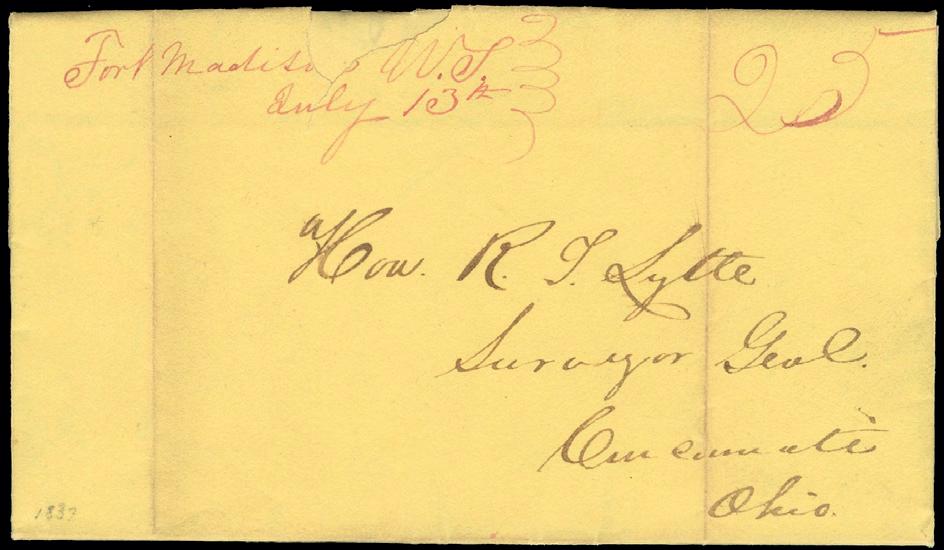 Fort Madison W.T.
July 13th
25
Hon. R. T. Lytle
Surveyor Genl.
Cincinnati
Ohio.
1837